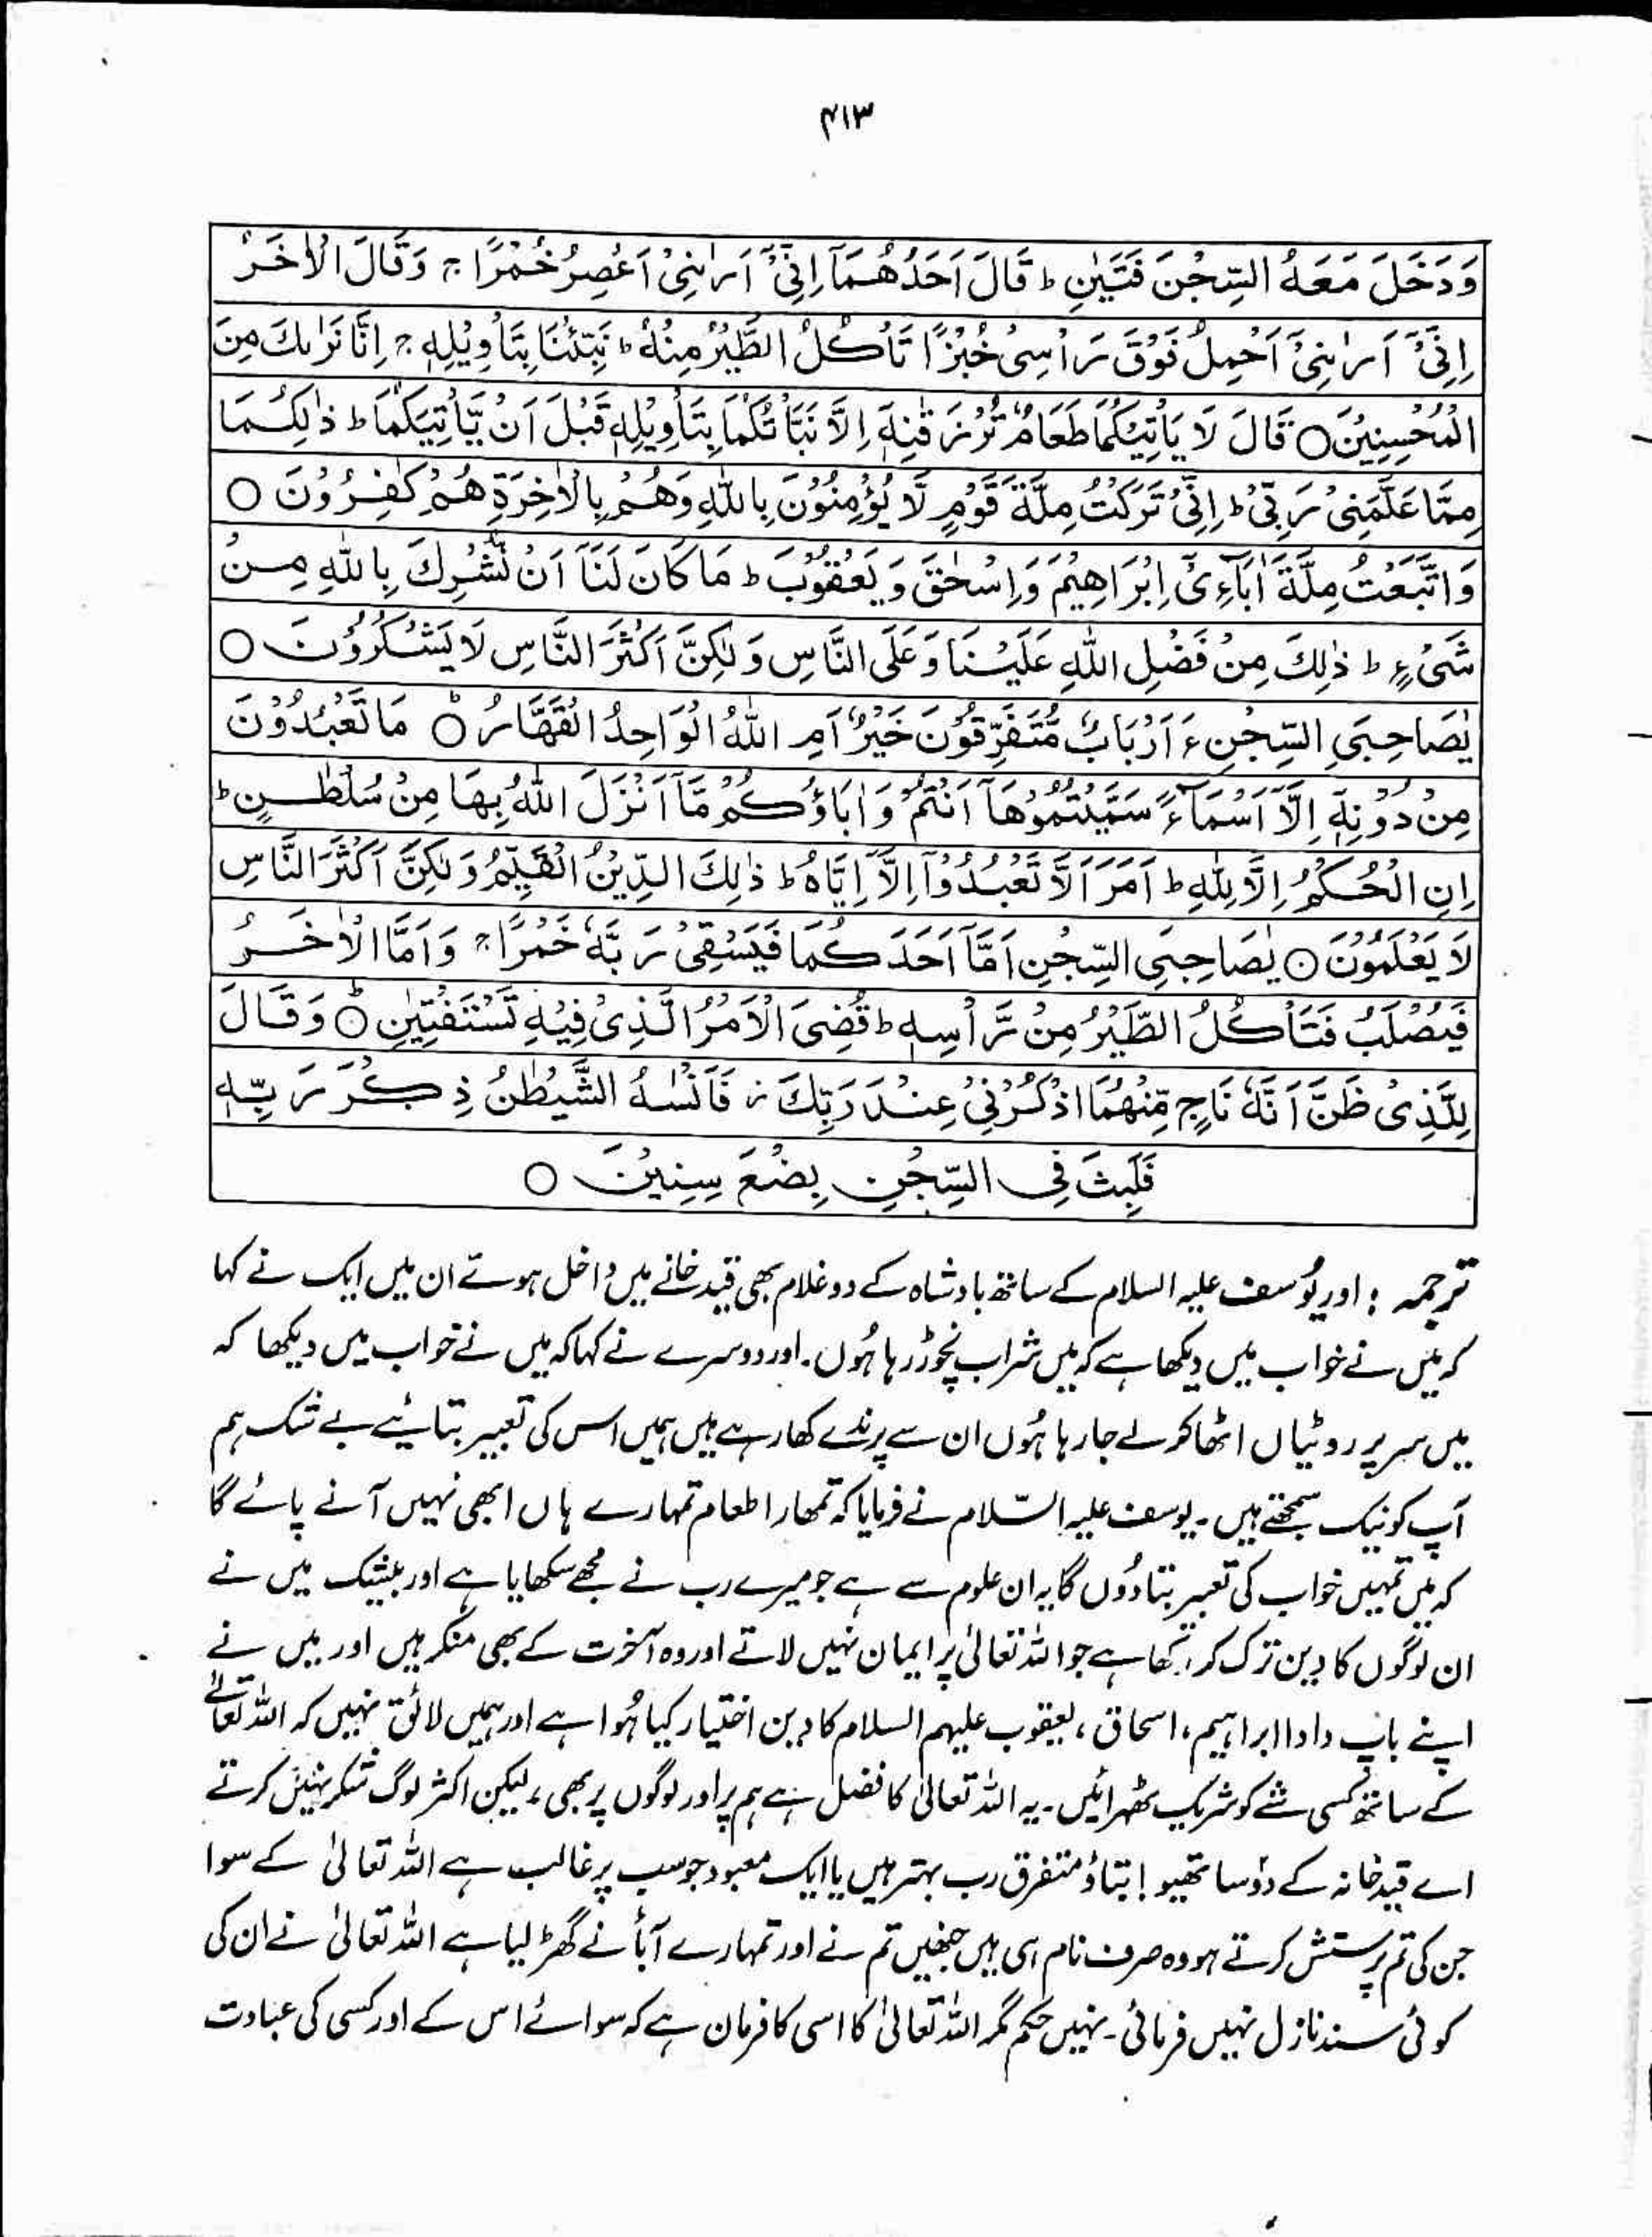 ۴۱۳
وَدَخَلَ مَعَهُ السِّجْنَ فَتَيٰنِ ؕ قَالَ اَحَدُهُمَآ اِنِّیْۤ اَرٰىنِیْۤ اَعْصِرُ خَمْرًا ۚ وَقَالَ الْاٰخَرُ
اِنِّیْۤ اَرٰىنِیْۤ اَحْمِلُ فَوْقَ رَاْسِیْ خُبْزًا تَاْكُلُ الطَّيْرُ مِنْهُ ؕ نَبِّئْنَا بِتَاْوِيْلِهٖ ۚ اِنَّا نَرٰىكَ مِنَ
الْمُحْسِنِيْنَ ○ قَالَ لَا يَاْتِيْكُمَا طَعَامٌ تُرْزَقٰنِهٖۤ اِلَّا نَبَّاْتُكُمَا بِتَاْوِيْلِهٖ قَبْلَ اَنْ يَّاْتِيَكُمَا ؕ ذٰلِكُمَا
مِمَّا عَلَّمَنِیْ رَبِّیْ ؕ اِنِّیْ تَرَكْتُ مِلَّةَ قَوْمٍ لَّا يُؤْمِنُوْنَ بِاللّٰهِ وَهُمْ بِالْاٰخِرَةِ هُمْ كٰفِرُوْنَ ○
وَاتَّبَعْتُ مِلَّةَ اٰبَآءِیْۤ اِبْرَاهِيْمَ وَاِسْحٰقَ وَيَعْقُوْبَ ؕ مَا كَانَ لَنَآ اَنْ نُّشْرِكَ بِاللّٰهِ مِنْ
شَیْءٍ ؕ ذٰلِكَ مِنْ فَضْلِ اللّٰهِ عَلَيْنَا وَعَلَى النَّاسِ وَلٰكِنَّ اَكْثَرَ النَّاسِ لَا يَشْكُرُوْنَ ○
يٰصَاحِبَیِ السِّجْنِ ءَاَرْبَابٌ مُّتَفَرِّقُوْنَ خَيْرٌ اَمِ اللّٰهُ الْوَاحِدُ الْقَهَّارُ ○ؕ مَا تَعْبُدُوْنَ
مِنْ دُوْنِهٖۤ اِلَّآ اَسْمَآءً سَمَّيْتُمُوْهَآ اَنْتُمْ وَاٰبَاؤُكُمْ مَّآ اَنْزَلَ اللّٰهُ بِهَا مِنْ سُلْطٰنٍ ؕ
اِنِ الْحُكْمُ اِلَّا لِلّٰهِ ؕ اَمَرَ اَلَّا تَعْبُدُوْۤا اِلَّآ اِيَّاهُ ؕ ذٰلِكَ الدِّيْنُ الْقَيِّمُ وَلٰكِنَّ اَكْثَرَ النَّاسِ
لَا يَعْلَمُوْنَ ○ يٰصَاحِبَیِ السِّجْنِ اَمَّآ اَحَدَكُمَا فَيَسْقِیْ رَبَّهٗ خَمْرًا ۚ وَاَمَّا الْاٰخَرُ
فَيُصْلَبُ فَتَاْكُلُ الطَّيْرُ مِنْ رَّاْسِهٖ ؕ قُضِیَ الْاَمْرُ الَّذِیْ فِيْهِ تَسْتَفْتِيٰنِ ○ؕ وَقَالَ
لِلَّذِیْ ظَنَّ اَنَّهٗ نَاجٍ مِّنْهُمَا اذْكُرْنِیْ عِنْدَ رَبِّكَ ز فَاَنْسٰىهُ الشَّيْطٰنُ ذِكْرَ رَبِّهٖ
فَلَبِثَ فِی السِّجْنِ بِضْعَ سِنِيْنَ ○
ترجمہ : اور یُوسف علیہ السلام کے ساتھ بادشاہ کے دو غلام بھی قید خانے میں داخل ہوتے ان میں ایک نے کہا
کہ میں نے خواب میں دیکھا ہے کہ میں شراب نچوڑ رہا ہُوں۔ اور دوسرے نے کہا کہ میں نے خواب میں دیکھا کہ
میں سر پر روٹیاں اٹھا کر لے جا رہا ہُوں ان سے پرندے کھا رہے ہیں ہمیں اس کی تعبیر بتائیے بے شک ہم
آپ کو نیک سمجھتے ہیں۔ یوسف علیہ السّلام نے فرمایا کہ تمھارا طعام تمہارے ہاں ابھی نہیں آنے پائے گا
کہ میں تمہیں خواب کی تعبیر بتا دُوں گا یہ ان علوم سے ہے جو میرے رب نے مجھے سکھایا ہے اور بیشک میں نے
ان لوگوں کا دین ترک کر رکھا ہے جو اللہ تعالیٰ پر ایمان نہیں لاتے اور وہ آخرت کے بھی منکر ہیں اور میں نے
اپنے باپ دادا ابراہیم، اسحاق، یعقوب علیہم السلام کا دین اختیار کیا ہُوا ہے اور ہمیں لائق نہیں کہ اللہ تعالےٰ
کے ساتھ کسی شے کو شریک ٹھہرائیں۔ یہ اللہ تعالیٰ کا فضل ہے ہم پر اور لوگوں پر بھی، لیکن اکثر لوگ شکر نہیں کرتے
اے قید خانہ کے دو ساتھیو! بتاؤ متفرق رب بہتر ہیں یا ایک معبود جو سب پر غالب ہے اللہ تعالیٰ کے سوا
جن کی تم پرستش کرتے ہو وہ صرف نام ہی ہیں جنھیں تم نے اور تمہارے آبأ نے گھڑ لیا ہے اللہ تعالیٰ نے ان کی
کوئی سند نازل نہیں فرمائی۔ نہیں حکم مگر اللہ تعالیٰ کا اسی کا فرمان ہے کہ سوائے اس کے اور کسی کی عبادت